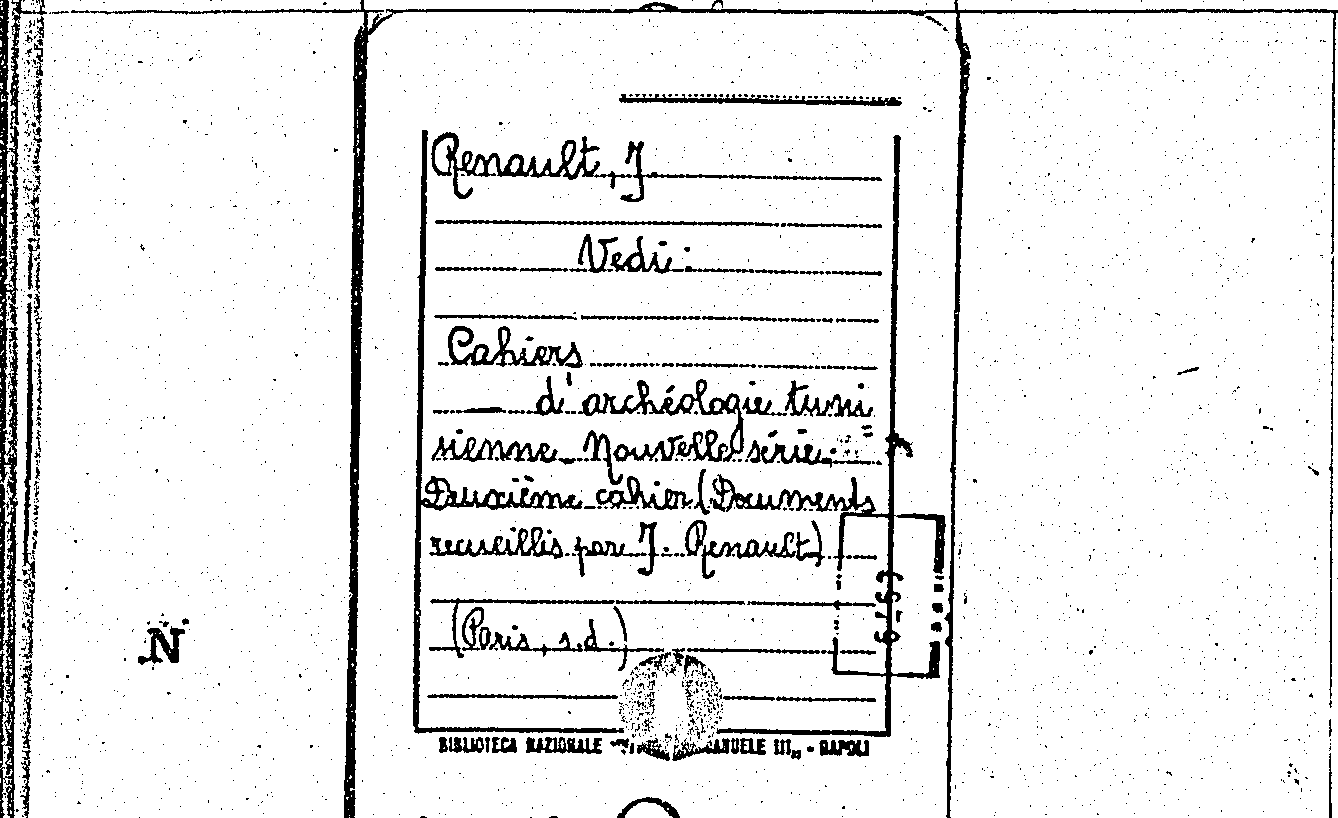 Renault, J.
Vedi:
Cahiers
— d'archéologie tuni
sienne. Nouvelle série.
Deuxième cahier (Documents
recueillis par J. Renault)
(Paris, s.d.)
BIBLIOTECA NAZIONALE ANUELE III„ - NAPOLI
N